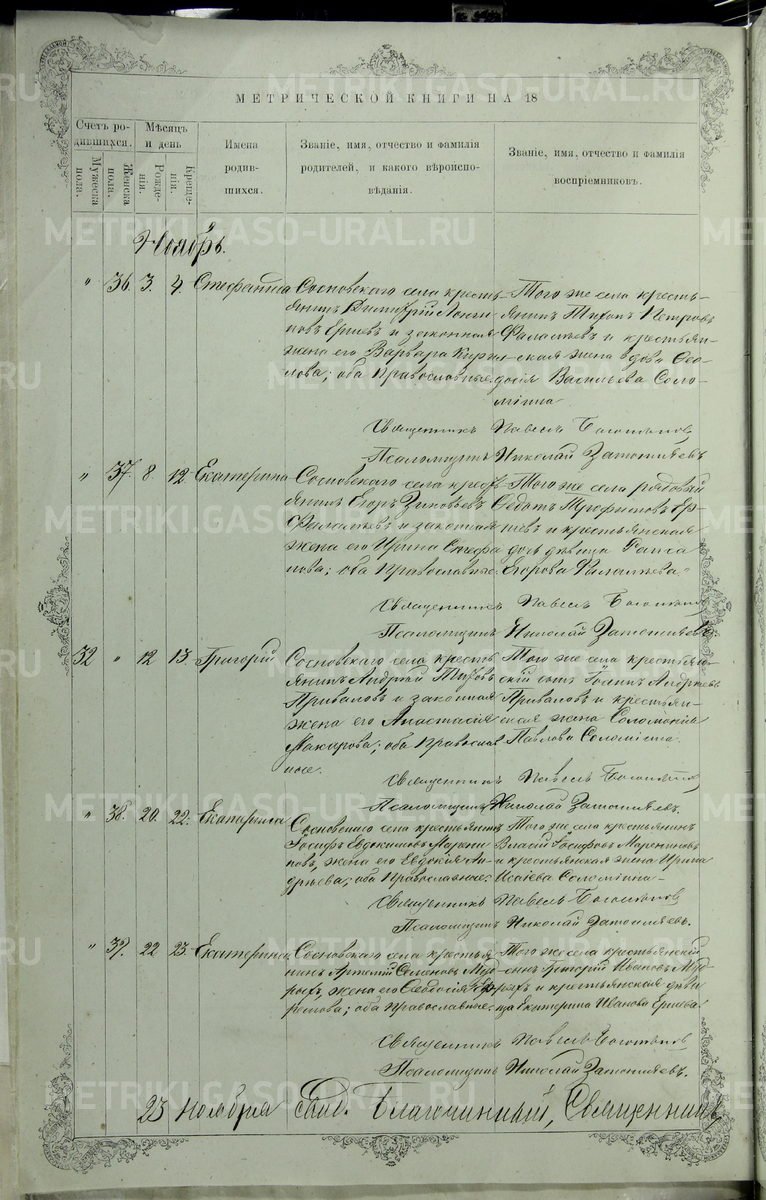 МЕТРИЧЕСКОЙ КНИГИ НА 18
Счетъ родившихся.
Мужеска пола.
Женска пола.
Мѣсяцъ и день
Рожденія.
Крещенія.
Имена родившихся.
Званіе, имя, отчество и фамилія родителей, и какого вѣроисповѣданія.
Званіе, имя, отчество и фамилія воспріемниковъ.
Ноябрь.
" 36. 3. 4. Стефанида
Сосновскаго села кресть-
янинъ Димитрій Логи-
новъ Ершевъ и законная
жена его Варвара
лова; оба Православные.
Того же села кресть-
янинъ Тихонъ Петровъ
и крестьян-
ская жена вдова Ѳео-
досія Васильева Соло-
мина
Священникъ Павелъ
Псаломщикъ Николай
" 37. 8. 12. Екатерина
Сосновскаго села крест-
янинъ Егоръ Зиновьевъ
и законная
жена его Ирина Стефа-
нова; оба Православные.
Того же села рядовый
Ѳедотъ Трофимовъ Ер-
шевъ и крестьянская
дочь дѣвица Раиса
Егорова
Священникъ Павелъ
Псаломщикъ Николай
32 " 12 13 Григорій
Сосновскаго села кресть-
янинъ Андрей
Приваловъ и законная
жена его Анастасія
Макарова; оба Православ-
ные.
Того же села крестьян-
скій сынъ Іоаннъ Андреевъ
Приваловъ и крестьян-
ская жена Соломонія
Павлова Соломина.
Священникъ Павелъ
Псаломщикъ Николай
" 38. 20. 22. Екатерина
Сосновскаго села крестьянинъ
Іосифъ Евдокимовъ
жена его Евдокія Ан-
дреева; оба Православные.
Того же села крестьянинъ
Власій Іосифовъ
и крестьянская жена Ирина
Исаіева Соломина
Священникъ Павелъ
Псаломщикъ Николай
" 39. 22 23 Екатерина
Сосновскаго села крестья-
нинъ Артемій Семеновъ Муд-
рыхъ, жена его Ѳеодосія
оба Православные.
Того же села крестьянскій
сынъ Григорій Ивановъ Муд-
рыхъ и крестьянская дѣви-
ца Екатерина Иванова Ершева
Священникъ Павелъ
Псаломщикъ Николай
23 Ноября Благочинный, Священникъ
METRIKI.GASO-URAL.RU